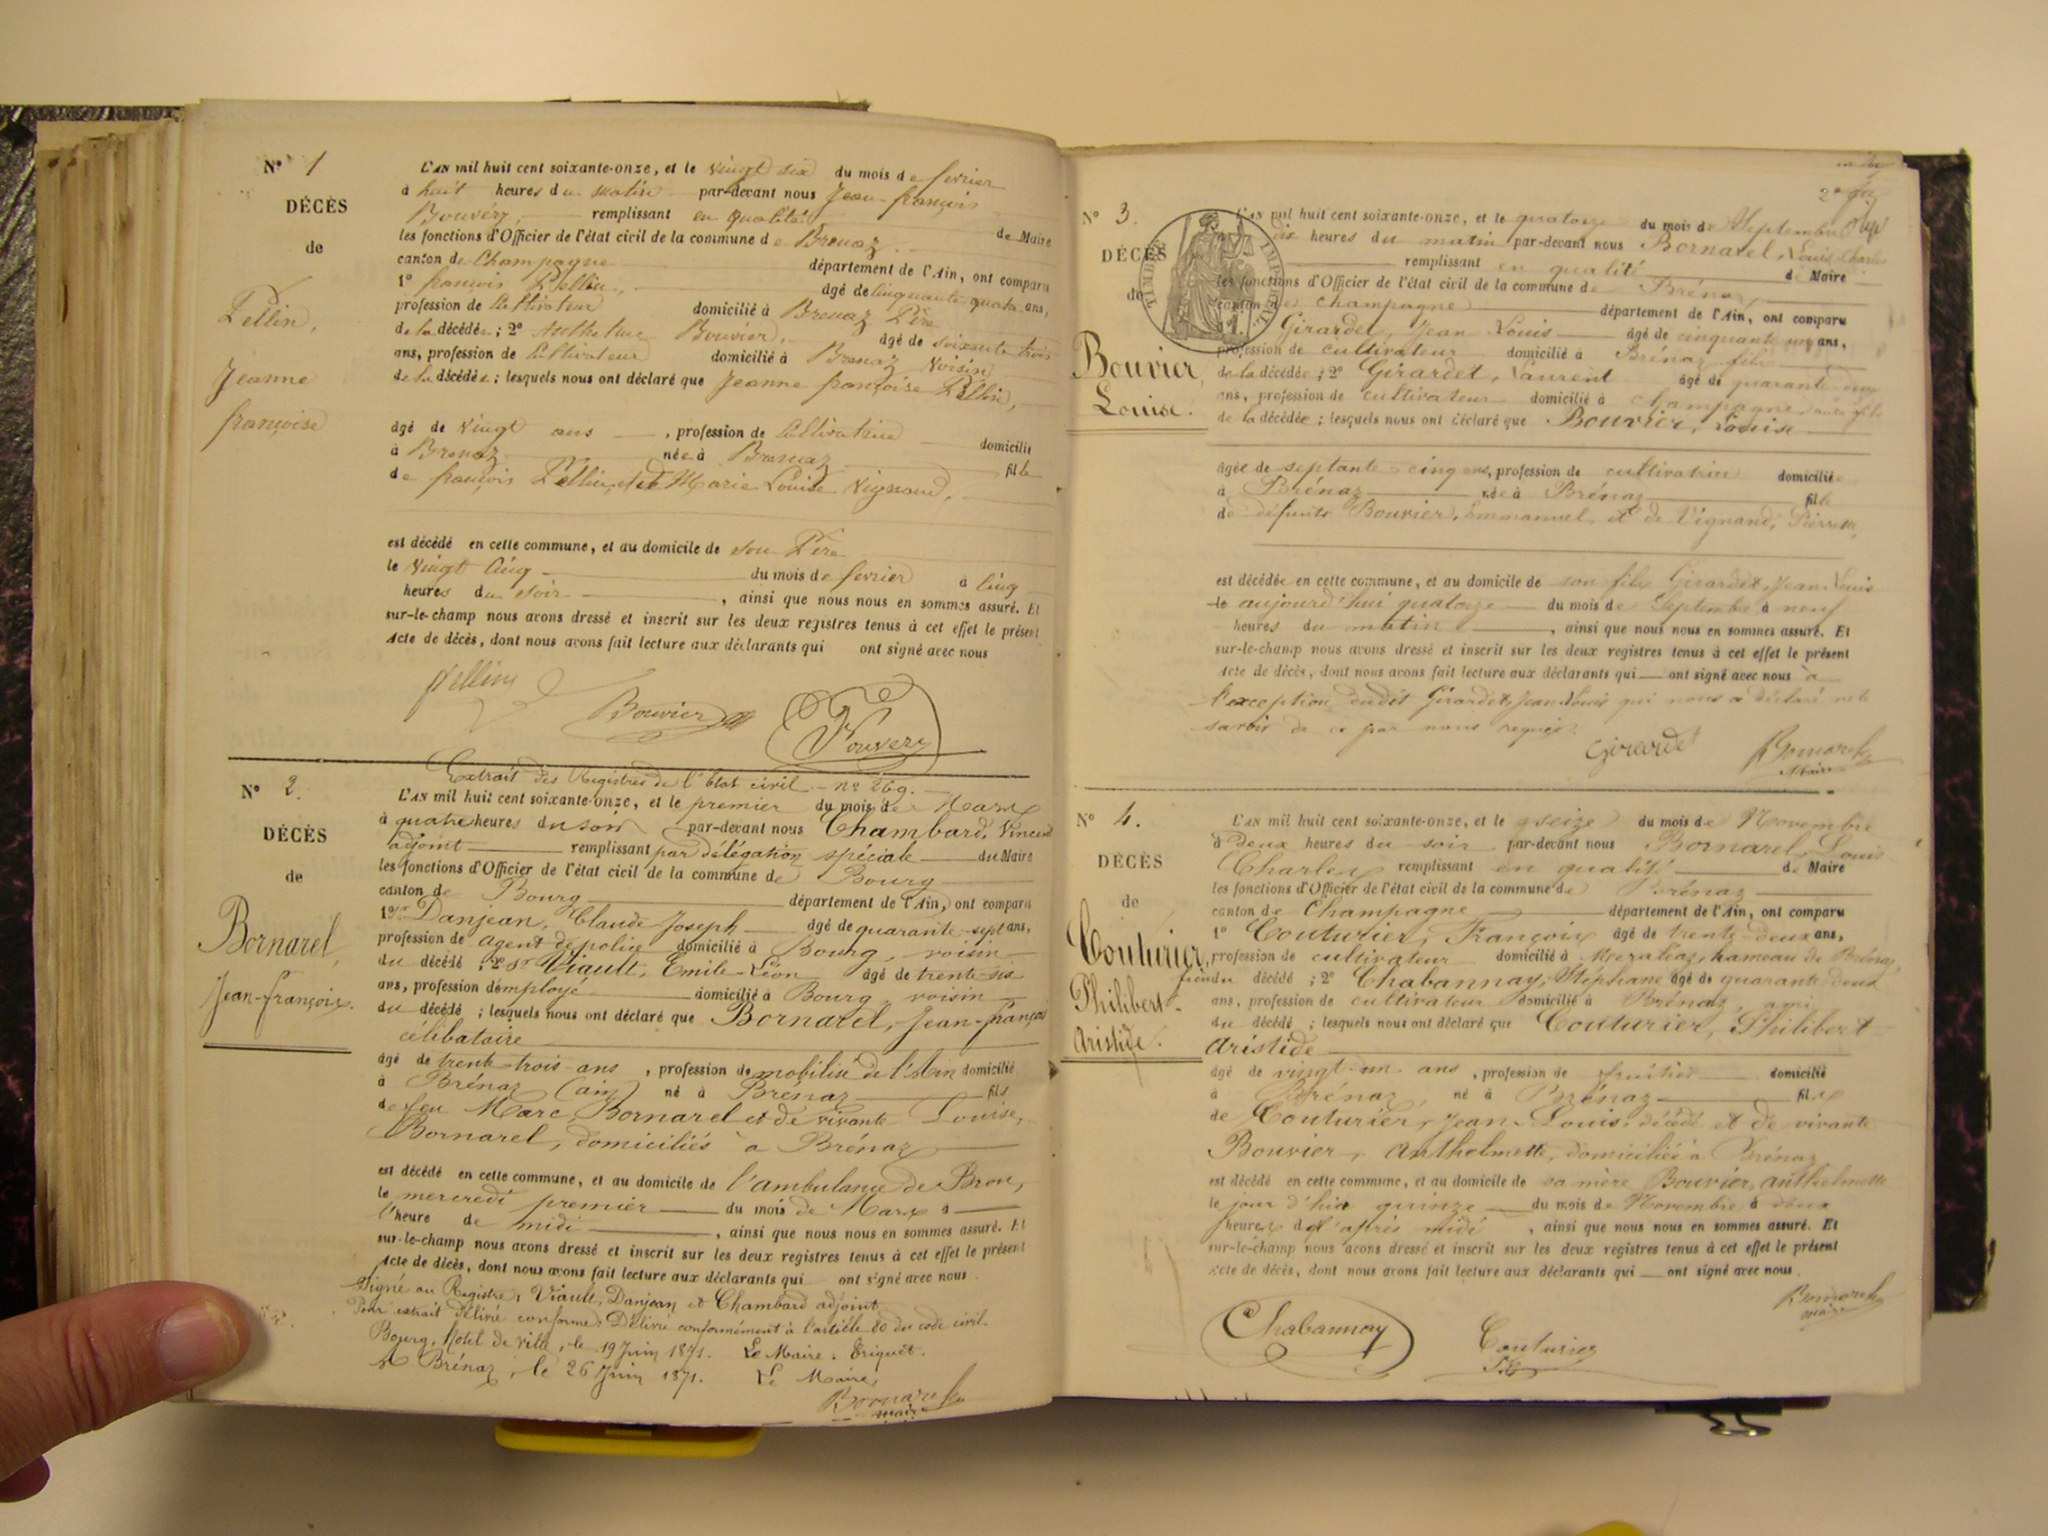 N° 1
DÉCÈS
de
Pellin,
Jeanne
françoise
L'AN mil huit cent soixante-onze, et le vingt six du mois de fevrier
à huit heures du matin par-devant nous Jean françois
Bouvery, remplissant en qualité de Maire
les fonctions d'Officier de l'état civil de la commune de Brenaz
canton de Champagne département de l'Ain, ont comparu
1° françois Pellin, âgé de cinquante quatre ans,
profession de Cultivateur domicilié à Brenaz Père
de la décédée; 2° Anthelme Bouvier, âgé de soixante trois
ans, profession de Cultivateur domicilié à Brenaz Voisin
de la décédée; lesquels nous ont déclaré que Jeanne françoise Pellin,
âgé de vingt ans, profession de Cultivatrice domicilié
à Brenaz née à Brenaz fille
de françois Pellin, et de Marie Louise Vignand,
est décédé en cette commune, et au domicile de son Père
le vingt cinq du mois de fevrier à cinq
heures du soir, ainsi que nous nous en sommes assuré. Et
sur-le-champ nous avons dressé et inscrit sur les deux registres tenus à cet effet le présent
acte de décès, dont nous avons fait lecture aux déclarants qui ont signé avec nous
Pellin Bouvier Bouvery
N° 2.
DÉCÈS
de
Bornarel,
Jean-françois.
Extrait des Registres de l'Etat civil - n° 269.
L'AN mil huit cent soixante-onze, et le premier du mois de Mars
à quatre heures du soir par-devant nous Chambard, Vincent
adjoint remplissant par délégation spéciale du Maire
les fonctions d'Officier de l'état civil de la commune de Bourg
canton de Bourg département de l'Ain, ont comparu
1° sr Danjean, Claude Joseph âgé de quarante-sept ans,
profession de agent de police domicilié à Bourg, voisin
du décédé; 2° sr Viault, Emile-Léon âgé de trente-six
ans, profession d'employé domicilié à Bourg, voisin
du décédé; lesquels nous ont déclaré que Bornarel, Jean-françois
célibataire
âgé de trente-trois ans, profession de mobilisé de l'Ain domicilié
à Brénaz (ain) né à Brénaz fils
de feu Marc Bornarel et de vivante Louise,
Bornarel, domiciliés à Brénaz
est décédé en cette commune, et au domicile de l'ambulance de Brou,
le mercredi premier du mois de Mars à
l'heure de midi, ainsi que nous nous en sommes assuré. Et
sur-le-champ nous avons dressé et inscrit sur les deux registres tenus à cet effet le présent
acte de décès, dont nous avons fait lecture aux déclarants qui ont signé avec nous
Signé au Registre, Viault, Danjean et Chambard adjoint
Pour extrait Délivré conforme. Délivré conformément à l'article 80 du code civil.
Bourg, hôtel de ville, le 19 Juin 1871. Le Maire. Triquet.
A Brénaz, le 26 Juin 1871. Le Maire
Bornarel
maire
2e
N° 3.
DÉCÈS
de
Bouvier,
Louise.
TIMBRE IMPERIAL
L'AN mil huit cent soixante-onze, et le quatorze du mois de Septembre
dix heures du matin par-devant nous Bornarel, Louis Charles
remplissant en qualité de Maire
les fonctions d'Officier de l'état civil de la commune de Brénaz,
canton de Champagne département de l'Ain, ont comparu
1° Girardet, Jean Louis âgé de cinquante un ans,
profession de cultivateur domicilié à Brénaz fils
de la décédée; 2° Girardet, Laurent âgé de quarante-deux
ans, profession de cultivateur domicilié à Champagne, aussi fils
de la décédée; lesquels nous ont déclaré que Bouvier, Louise
âgée de septante-cinq ans, profession de cultivatrice domiciliée
à Brénaz née à Brénaz fille
de défunts Bouvier, Emmanuel, et de Vignand, Pierrette,
est décédée en cette commune, et au domicile de son fils Girardet, Jean Louis
le aujourd'hui quatorze du mois de Septembre à neuf
heures du matin, ainsi que nous nous en sommes assuré. Et
sur-le-champ nous avons dressé et inscrit sur les deux registres tenus à cet effet le présent
acte de décès, dont nous avons fait lecture aux déclarants qui ont signé avec nous à
l'exception dudit Girardet, Jean Louis qui nous a déclaré ne le
savoir de ce par nous requis.
Girardet Bornarel
Maire
N° 4.
DÉCÈS
de
Couturier,
Philibert-
Aristide.
L'AN mil huit cent soixante-onze, et le seize du mois de Novembre
à deux heures du soir par-devant nous Bornarel, Louis
Charles remplissant en qualité de Maire
les fonctions d'Officier de l'état civil de la commune de Brénaz
canton de Champagne département de l'Ain, ont comparu
1° Couturier, François âgé de trente-deux ans,
profession de cultivateur domicilié à Méraléaz, hameau de Brénaz,
du décédé; 2° Chabannay, Stéphane âgé de quarante deux
ans, profession de cultivateur domicilié à Brénaz, ami
du décédé; lesquels nous ont déclaré que Couturier, Philibert
Aristide
âgé de vingt-un ans, profession de fruitier domicilié
à Brénaz, né à Brénaz fils
de Couturier, Jean-Louis, décédé et de vivante
Bouvier, Anthelmette, domiciliée à Brénaz
est décédé en cette commune, et au domicile de sa mère Bouvier, anthelmette
le jour d'hier quinze du mois de Novembre à deux
heures de l'après midi, ainsi que nous nous en sommes assuré. Et
sur-le-champ nous avons dressé et inscrit sur les deux registres tenus à cet effet le présent
acte de décès, dont nous avons fait lecture aux déclarants qui ont signé avec nous.
Bornarel
maire
Chabannay Couturier